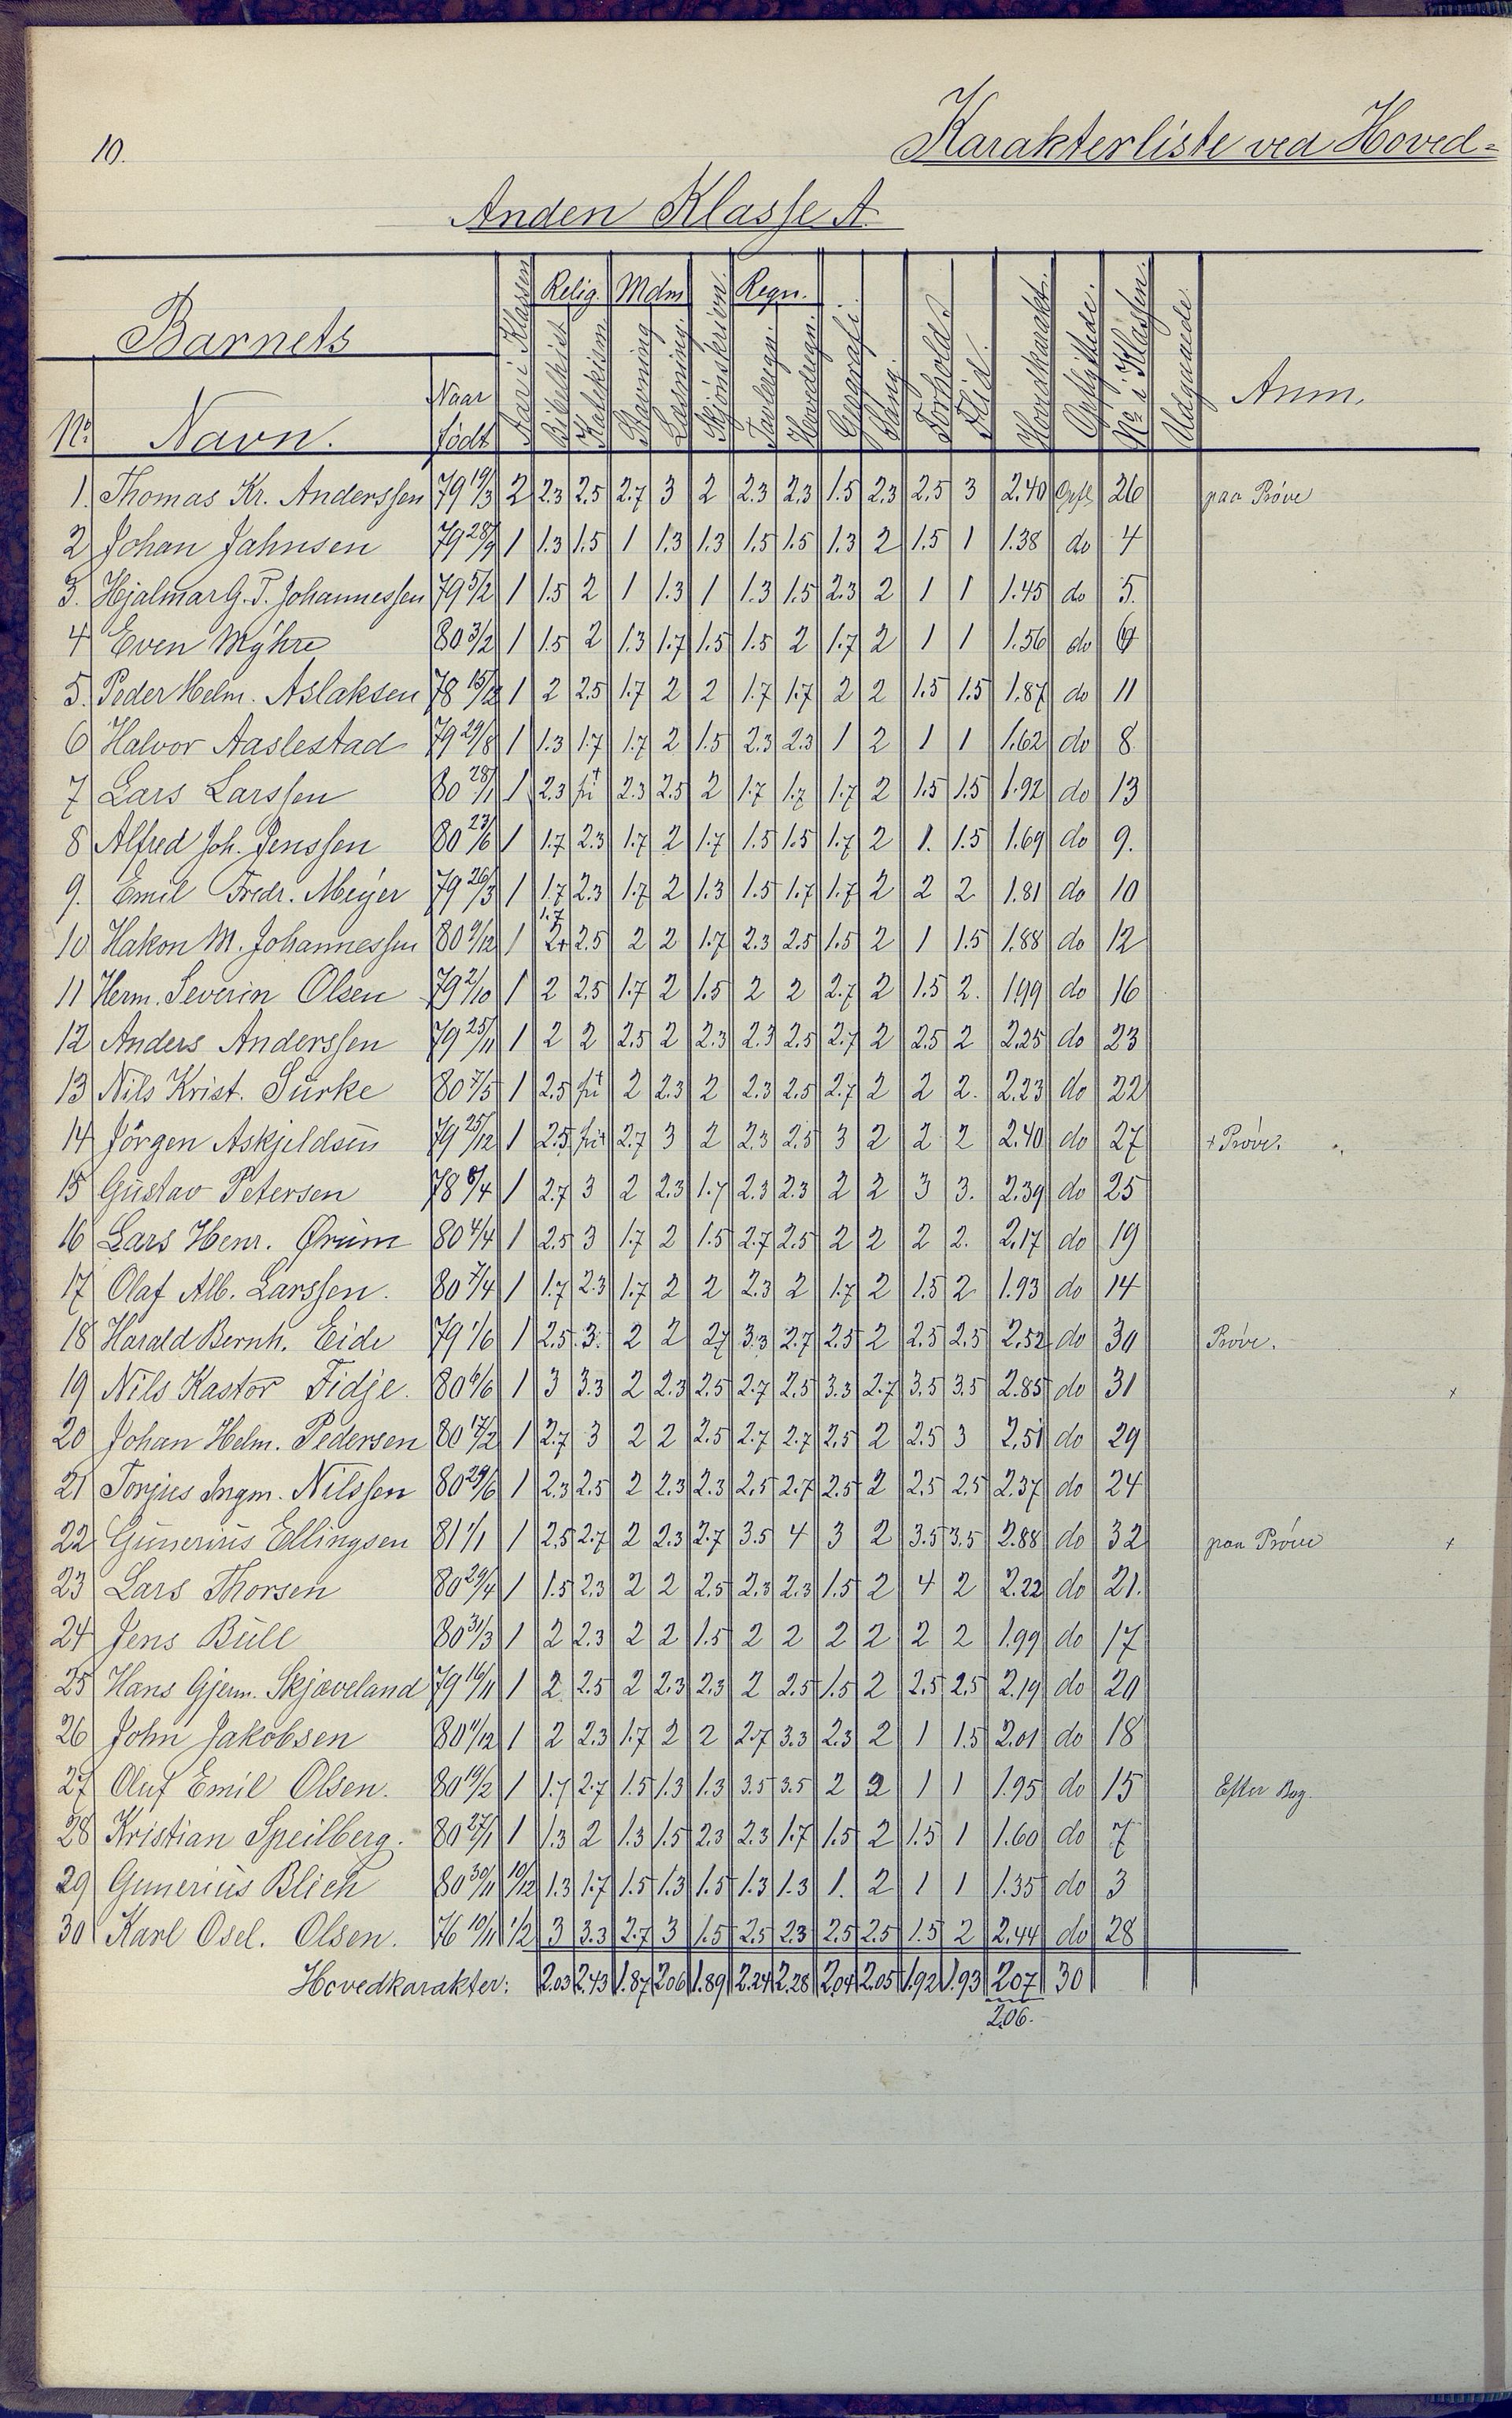 10.
Karakterliste ved Hoved-
Anden Klasse A
Barnets
Relig. Mdm Regn.
No. Navn. Naar født Aar i Klassen Bibelhist. Katekism. Stavning Læsning. Skjønskrivn. Tavleregn. Hovedregn. Geografi. Sang. Forhold. Flid. Hovedkarakt. Opflyttede. No i Klassen. Udgaaede. Anm.
1. Thomas Kr. Anderssen 79 19/3 2 2.3 2.5 2.7 3 2 2.3 2.3 1.5 2.3 2.5 3 2.40 Opfl 26 paa Prøve
2 Johan Jahnsen 79 28/9 1 1.3 1.5 1 1.3 1.3 1.5 1.5 1.3 2 1.5 1 1.38 do 4
3. Hjalmar G. T. Johannessen 79 5/2 1 1.5 2 1 1.3 1 1.3 1.5 2.3 2 1 1 1.45 do 5.
4 Even Myhre 80 3/2 1 1.5 2 1.3 1.7 1.5 1.5 2 1.7 2 1 1 1.56 do 6
5. Peder Helm. Aslaksen 78 15/12 1 2 2.5 1.7 2 2 1.7 1.7 2 2 1.5 1.5 1.87 do 11
6 Halvor Aaslestad 79 29/8 1 1.3 1.7 1.7 2 1.5 2.3 2.3 1 2 1 1 1.62 do 8
7 Lars Larssen 80 28/1 1 2.3 frit 2.3 2.5 2 1.7 1.7 1.7 2 1.5 1.5 1.92 do 13
8 Alfred Joh. Jenssen 80 23/6 1 1.7 2.3 1.7 2 1.7 1.5 1.5 1.7 2 1. 1.5 1.69 do 9.
9. Emil Fredr. Meyer 79 26/3 1 1.7 2.3 1.7 2 1.3 1.5 1.7 1.7 2 2 2 1.81 do 10
1.7
10 Hakon M. Johannessen 80 9/12 1 2+ 2.5 2 2 1.7 2.3 2.5 1.5 2 1 1.5 1.88 do 12
11 Herm. Severin Olsen 79 2/10 1 2 2.5 1.7 2 1.5 2 2 2.7 2 1.5 2. 1.99 do 16
12 Anders Anderssen 79 25/11 1 2 2 2.5 2 2.3 2.3 2.5 2.7 2 2.5 2 2.25 do 23
13 Nils Krist. Surke 80 7/5 1 2.5 frit 2 2.3 2 2.3 2.5 2.7 2 2 2. 2.23 do 22
14 Jörgen Askjeldsen 79 25/12 1 2.5 frit 2.7 3 2 2.3 2.5 3 2 2 2 2.40 do 27 + Prøve.
15 Gustav Petersen 78 8/4 1 2.7 3 2 2.3 1.7 2.3 2.3 2 2 3 3. 2.39 do 25
16 Lars Henr. Ørum 80 4/4 1 2.5 3 1.7 2 1.5 2.7 2.5 2 2 2 2. 2.17 do 19
17 Olaf Alb. Larssen. 80 7/4 1 1.7 2.3 1.7 2 2 2.3 2 1.7 2 1.5 2 1.93 do 14
18 Harald Bernh. Eide 79 1/6 1 2.5 3. 2 2 2.7 3.3 2.7 2.5 2 2.5 2.5 2.52 do 30 Prøve.
19 Nils Kastor Fidje. 80 6/6 1 3 3.3 2 2.3 2.5 2.7 2.5 3.3 2.7 3.5 3.5 2.85 do 31 +
20 Johan Helm. Pedersen 80 17/2 1 2.7 3 2 2 2.5 2.7 2.7 2.5 2 2.5 3 2.51 do 29
21 Torjus Ingm. Nilssen 80 29/6 1 2.3 2.5 2 2.3 2.3 2.5 2.7 2.5 2 2.5 2.5 2.37 do 24
22 Gunerius Ellingsen 81 1/1 1 2.5 2.7 2 2.3 2.7 3.5 4 3 2 3.5 3.5 2.88 do 32 paa Prøve +
23 Lars Thorsen 80 29/4 1 1.5 2.3 2 2 2.5 2.3 2.3 1.5 2 4 2 2.22 do 21.
24 Jens Bull 80 31/3 1 2 2.3 2 2 1.5 2 2 2 2 2 2 1.99 do 17
25 Hans Gjerm. Skjæveland 79 16/11 1 2 2.5 2 2.3 2.3 2 2.5 1.5 2 2.5 2.5 2.19 do 20
26 John Jakobsen 80 11/12 1 2 2.3 1.7 2 2 2.7 3.3 2.3 2 1 1.5 2.01 do 18
27 Oluf Emil Olsen. 80 19/2 1 1.7 2.7 1.5 1.3 1.3 3.5 3.5 2 2 1 1 1.95 do 15 Efter Bog.
28 Kristian Speilberg. 80 27/1 1 1.3 2 1.3 1.5 2.3 2.3 1.7 1.5 2 1.5 1 1.60 do 7
29 Gunerius Blich 80 30/11 10/12 1.3 1.7 1.5 1.3 1.5 1.3 1.3 1. 2 1 1 1.35 do 3
30 Karl Osel. Olsen. 76 10/11 1/2 3 3.3 2.7 3 1.5 2.5 2.3 2.5 2.5 1.5 2 2.44 do 28
Hovedkarakter: 2.03 2.43 1.87 2.06 1.89 2.24 2.28 2.04 2.05 1.92 1.93 2.07 30
2.06.